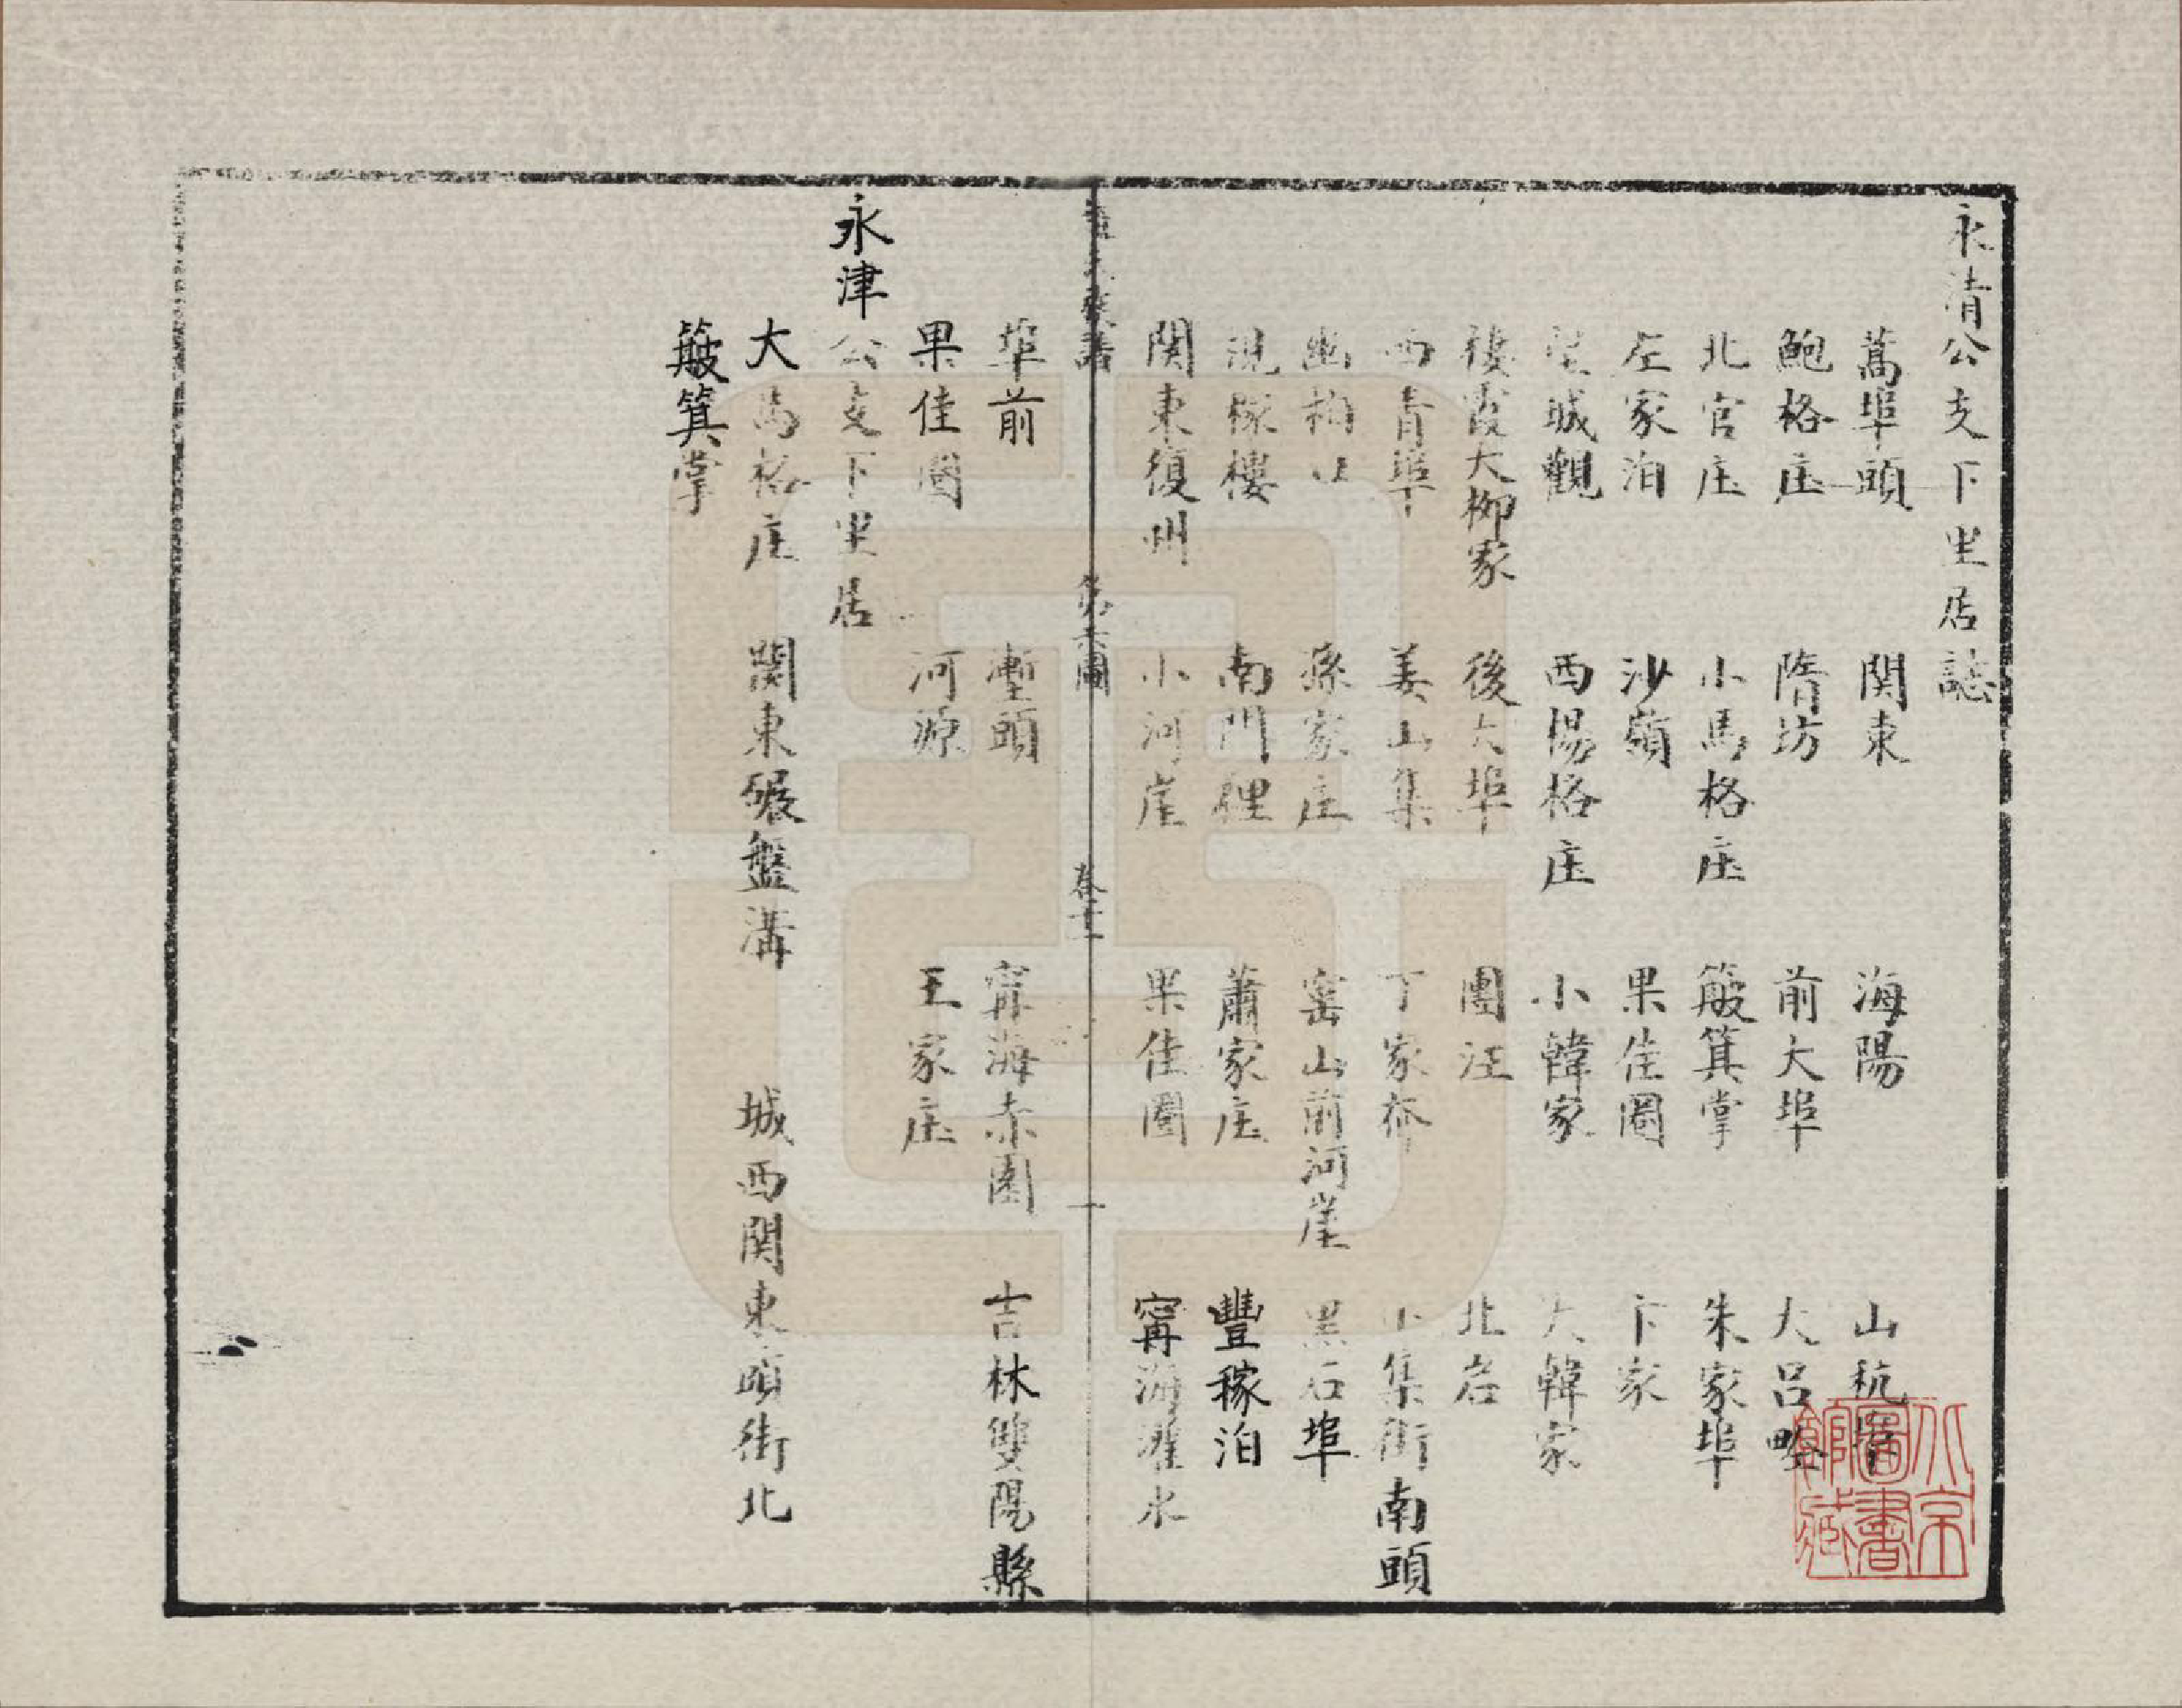 永清公支下坐居誌
蒿埠頭 関東 海陽 山秔
鮑格庄 隋坊 前大埠 大呂
北官庄 小馬格庄 簸箕掌 朱家埠
左家泊 沙嶺 果佳圈 卞家
城觀 西楊格庄 小韓家 大韓家
棲霞大柳家 後大埠 團汪 北岩
西青埠 姜山集 丁家夼 小集街南頭
孫家庄 窑山前河崖 黑石埠
樓 南門裡 蕭家庄 豐稼泊
関東復州 小河崖 果佳圈 甯海灌水
族譜 第六圖 一
埠前 塹頭 甯海赤圈 吉林雙陽縣
果佳圈 河源 王家庄
永津公支下坐居
大馬格庄 関東碾盤溝 城西関東頭街北
簸箕掌
北京圖書館藏